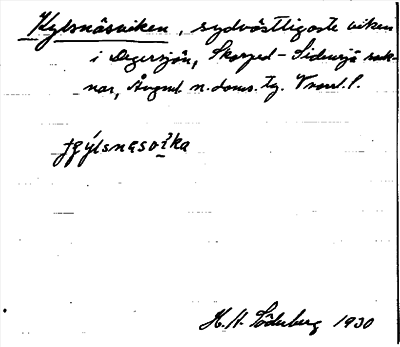 Kylsnäsviken, sydvästligaste viken
i Degersjön, Skorped - Sidensjö sock-
nar, Ångml. n. doms. tg. Vnml. l.
H. H. Söderberg 1930